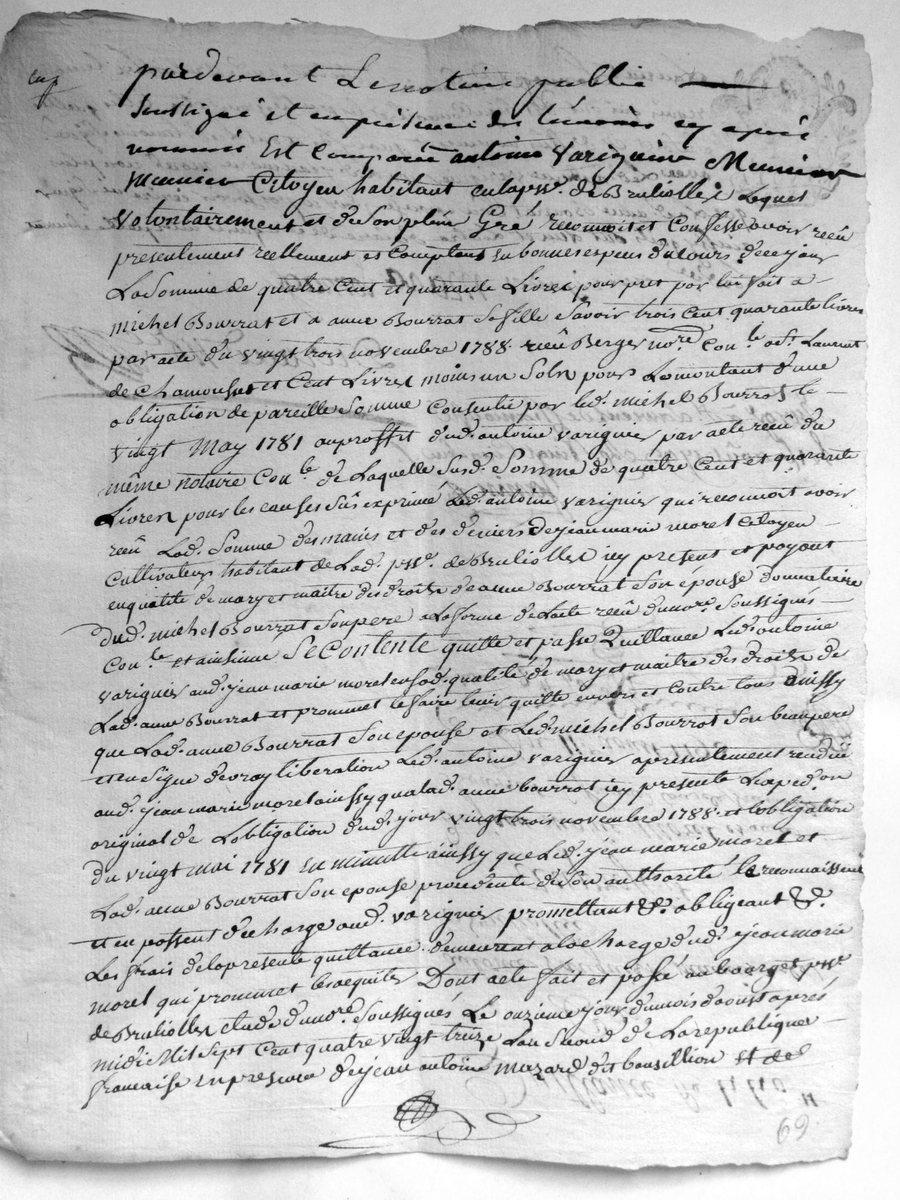 pardevant Le notaire public
soussigné et en présence des témoins cy après
nommés Est Comparée antoine varignier Meunier
meunier Citoyen habitant en la psse. de Brulioller Lequel
volontairement et de Son plein Gré reconnoit et Confesse avoir reçu
presentement reellement et Comptant en bonnes especes du Cours de ce jour
La Somme de quatre Cent et quarante Livres pour pret par lui fait a
michel Bourrat et a anne Bourrat Sa fille Savoir trois Cent quarante livres
par acte du vingt trois novembre 1788 reçu Berger nore. Con le. a St. Laurent
de Chamousset et Cent Livres moins un Soln pour Le montant d'une
obligation de pareille Somme Consentie par led. michel Bourrat le
vingt May 1781 au proffit dud. antoine varignier par acte reçu du
même notaire Con le. de Laquelle susd. Somme de quatre Cent et quarante
Livres pour les causes Sus exprimé Led. antoine varignier qui reconnoit avoir
reçu Lad. Somme des mains et des deniers de jean marie morel Citoyen
Cultivateur habitant de Lad. psse. de Brulioller icy present et payant
en qualité de mary et maitre des droits d'anne Bourrat Son épouse donnataire
dud. michel Bourrat Son pere a La forme de Lacte reçu du nore. Soussigné
Con le. et ainsi Se Contente quitte et passe Quittance Led. antoine
varignier aud. jean marie morel en sad. qualité de mary et maitre des droits de
Lad. anne Bourrat et promet Le faire tenir quitte envers et Contre tous aussy
que Lad. anne Bourrat Son épouse et Led. michel Bourrat Son beaupere
et en Signe de vray liberation Led. antoine varignier a presentement rendu
aud. jean marie morel aussy qua lad. anne bourrat icy presente Lexped.on
original de Lobligation dud. jour vingt trois novembre 1788 et Lobligation
du vingt mai 1781 en minutte ainssy que Led. jean marie morel et
Lad. anne Bourrat Son epouse procedente de Son authorité le reconnaissent
et en passent décharge aud. varignier promettant &c. obligeant &c.
Les frais de la presente quittance demeurant a la charge dud. jean marie
morel qui promet Dont acte fait et passé au bourg et psse
de Brulioller etude du nore. Soussigné Le onzieme jour du mois d'aoust après
midi Mil Sept Cent quatre vingt treize Lan Second de La republique
francaise en presence de jean antoine mazard dit bonsillion et de
69